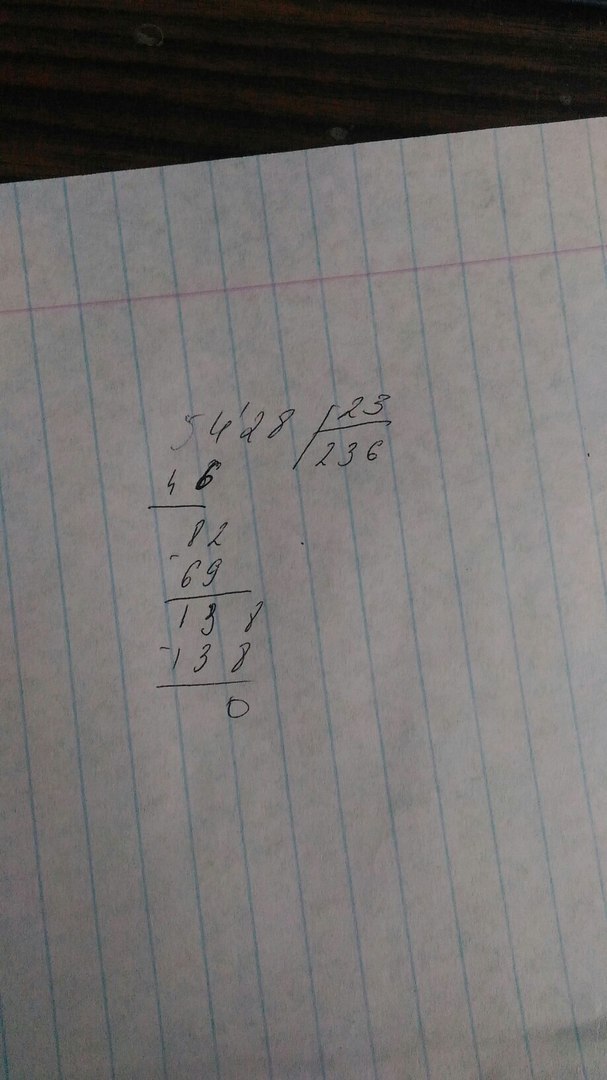 54'28 23
236
46
82
- 69
138
- 138
0